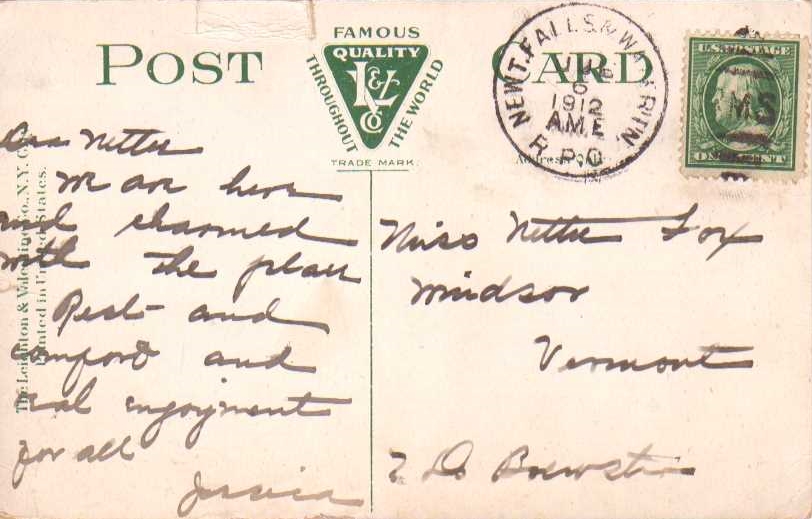 POST CARD
FAMOUS
QUALITY
L&V
CO
THROUGHOUT THE WORLD
TRADE MARK.
NEWT. FALLS & WA RTN
6
1912
A.M.E
R.P.O.
U.S. POSTAGE
ONE CENT
MS
The Leighton & Valentine Co., N.Y. C
Printed in United States.
Nettie
We are here
and charmed
with the place
Rest and
comfort and
real enjoyment
for all
Jessica
Miss Nettie Fox
Windsor
Vermont
Brewster